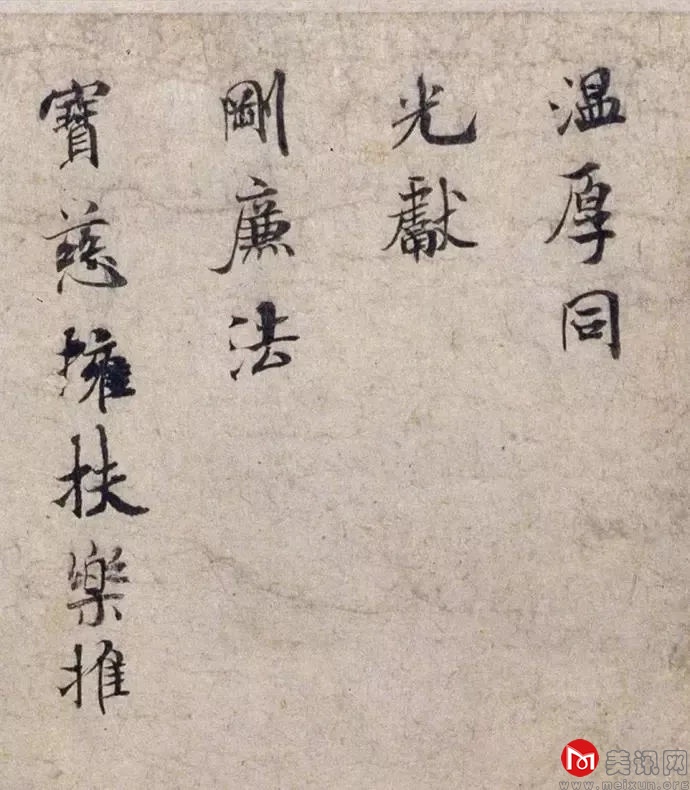 温厚同
光獻
剛廉法
寶慈擁扶樂推
美讯网
www.meixun.org